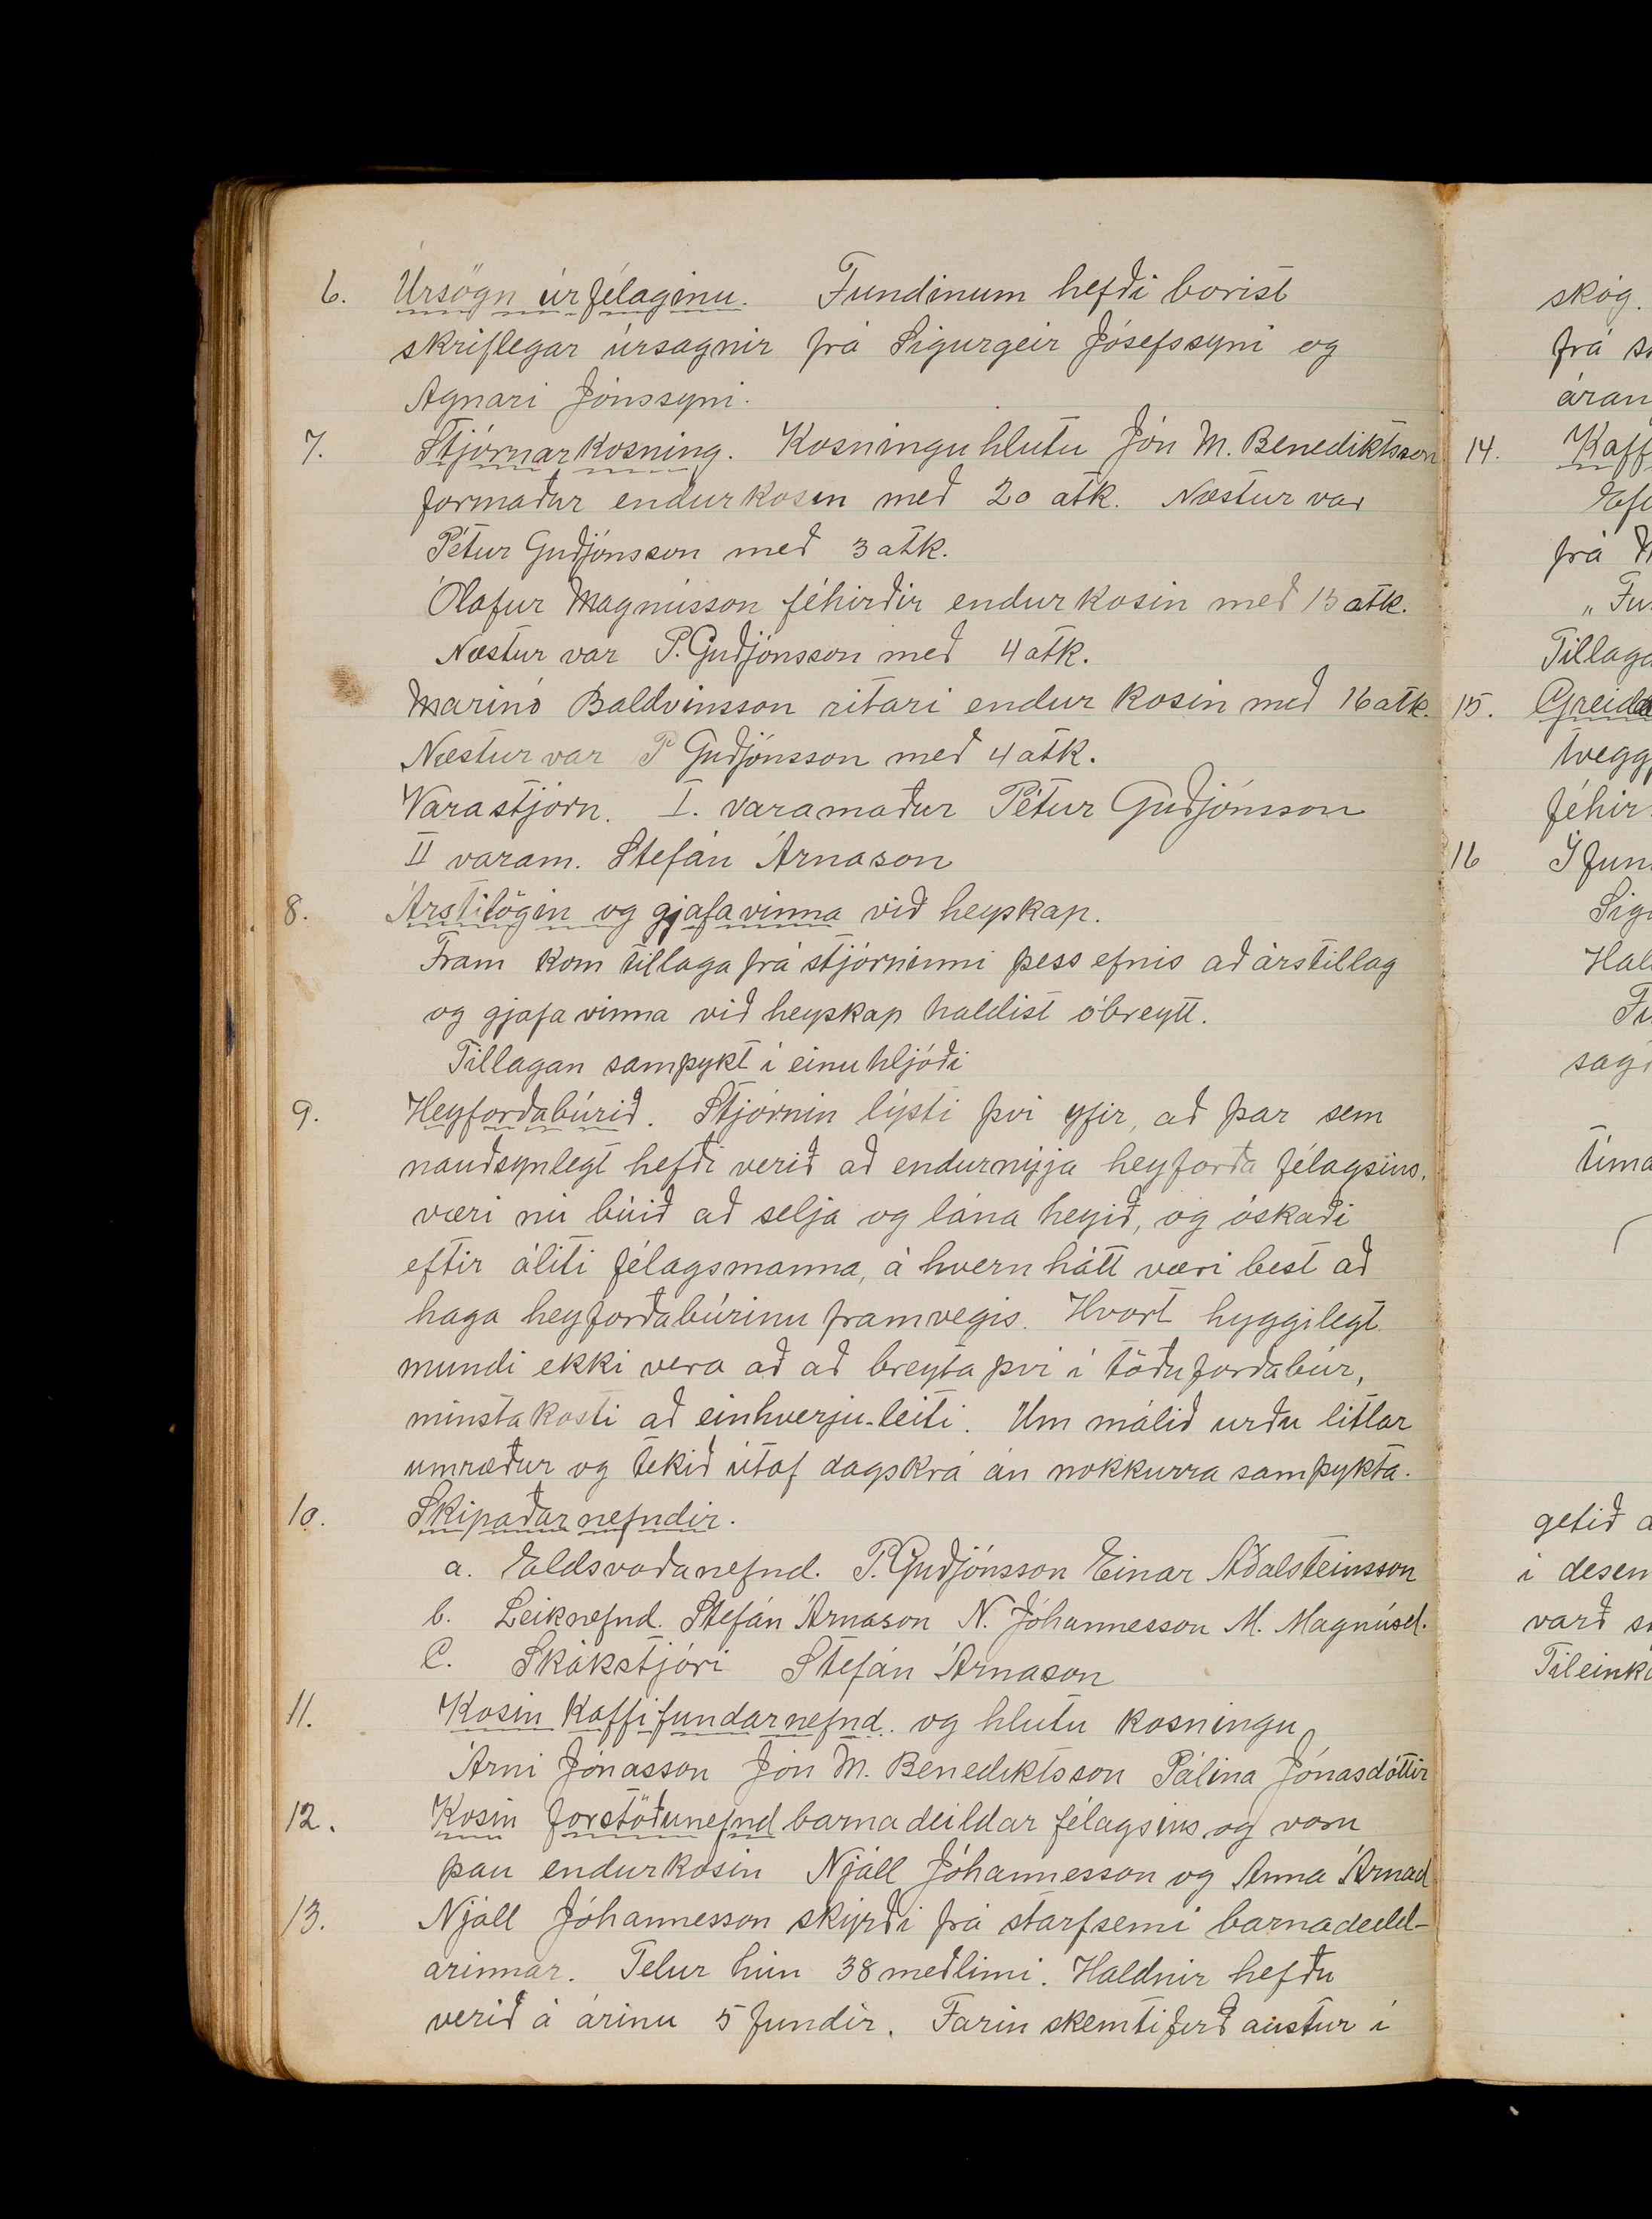 6. Úrsögn úr félaginu. Fundinum hefði borist
skriflegar úrsagnir frá Sigurgeir Jósefssyni og
Agnari Jónssyni.
7. Stjórnarkosning. Kosningu hlutu Jón M. Benediktsson
formaður endurkosin með 20 atk. Næstur var
Pétur Guðjónsson með 3 atk.
Ólafur Magnússon féhirðir endurkosin með 13 atk.
Næstur var P. Guðjónsson með 4 atk.
Marinó Baldvinsson ritari endurkosin með 16 atk.
Næstur var P Guðjónsson með 4 atk.
Varastjórn. I. varamaður Pétur Guðjónsson
II varam. Stefán Árnason
8. Árstilögin og gjafavinna við heyskap.
Fram kom tillaga frá stjórninni þess efnis að árstillag
og gjafavinna við heyskap haldist óbreytt.
Tillagan samþykt í einu hljóði
9. Heyforðabúrið. Stjórnin lýsti því yfir, að þar sem
nauðsynlegt hefði verið að endurnýja heyforða félagsins,
væri nú búið að selja og lána heyið, og óskaði
eftir áliti félagsmanna, á hvern hátt væri best að
haga heyforðabúrinu framvegis. Hvort hyggilegt
mundi ekki vera að að breyta því í töðuforðabúr,
minstakosti að einhverju-leiti. Um málið urðu litlar
umræður og tekið útaf dagskrá án nokkurra samþykta.
10. Skipaðar nefndir.
a. Eldsvoðanefnd. P. Guðjónsson Einar Aðalsteinsson
b. Leiknefnd. Stefán Árnason N. Jóhannesson M. Magnúsd.
C. Skákstjóri Stefán Árnason
11. Kosin Kaffifundarnefnd. og hlutu kosningu
Árni Jónasson Jón M. Benediktsson Pálína Jónasdóttir
12. Kosin forstöðunefnd barnadeildar félagsins og voru
þau endurkosin Njáll Jóhannesson og Anna Árnad
13. Njáll Jóhannesson skýrði frá starfsemi barnadeild-
arinnar. Telur hún 38 meðlimi. Haldnir hefðu
verið á árinu 5 fundir. Farin skemtiferð austur í
skóg.
frá
áran
14. Kaff
Eft
frá
„Fu
Tillaga
15. Greidd
tvegg
féhir
16 Í fun
Sig
Hal
Fu
sag
tíma
getið a
í desem
varð
Tileink